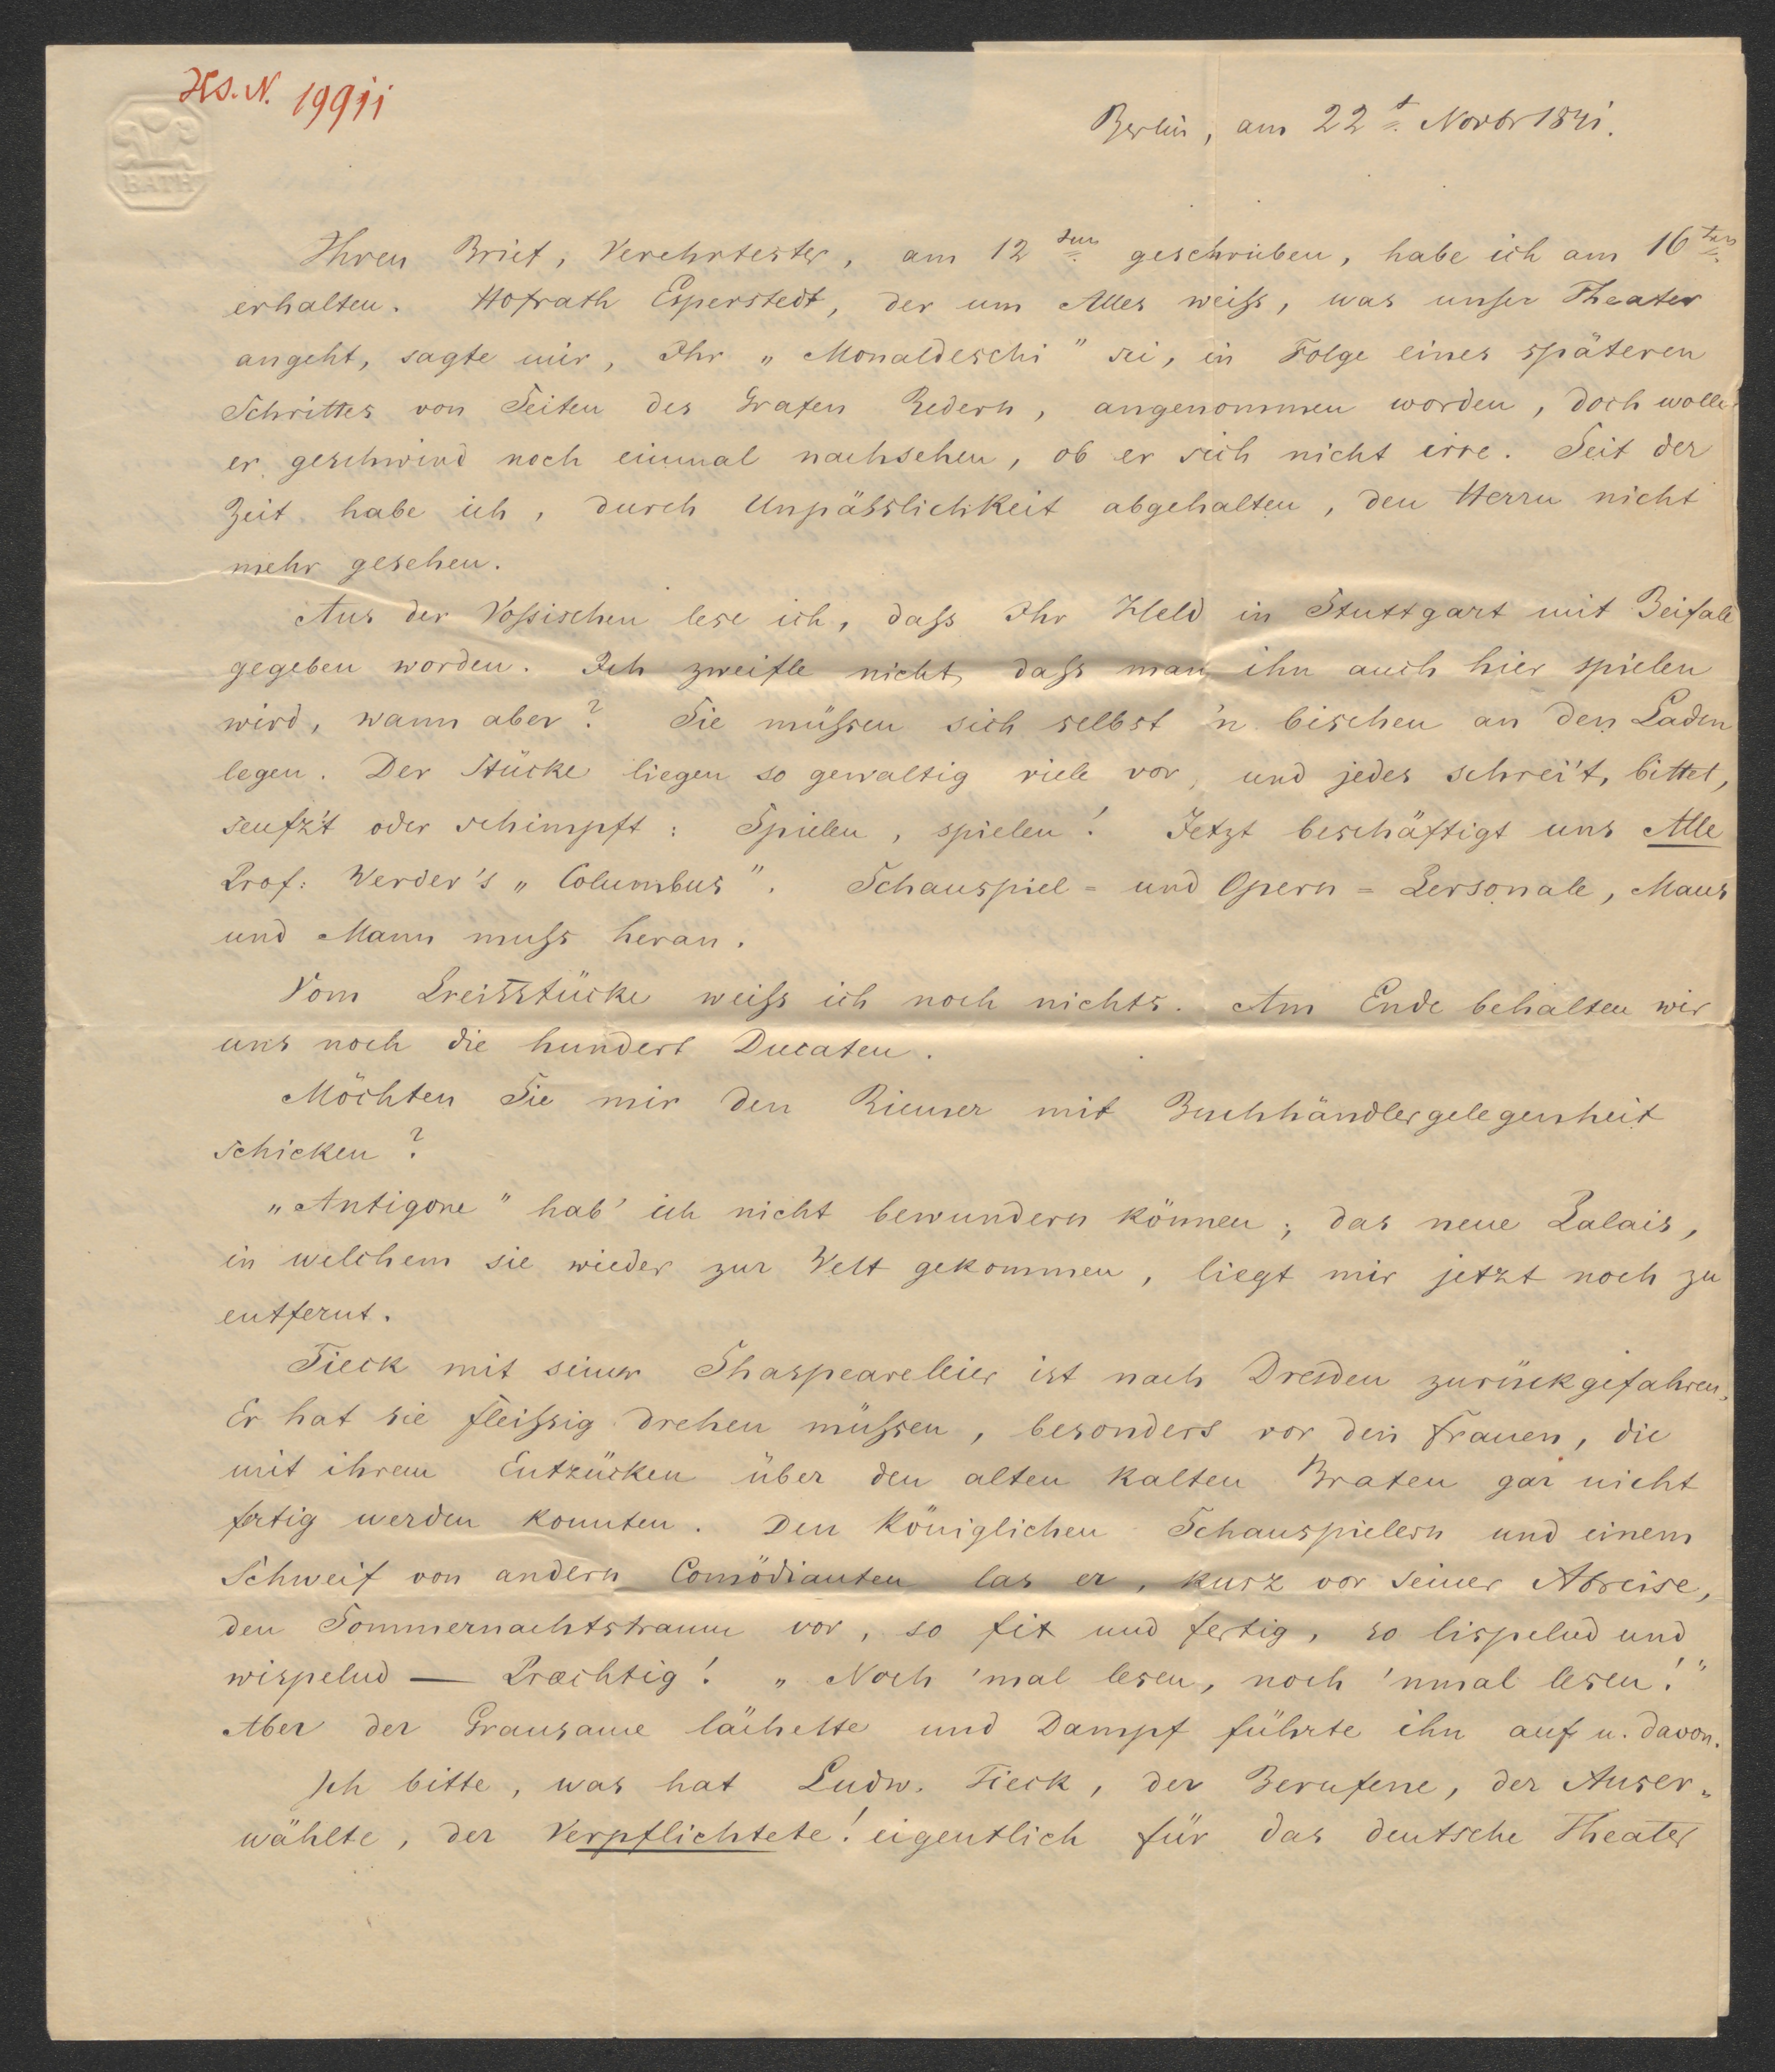 HS. N. 19911
BATH
Berlin, am 22t. Novbr 1841.
Ihren Brief, Verehrtester, am 12ten geschrieben, habe ich am 16ten
erhalten. Hofrath Esperstedt, der um Alles weiß, was unser Theater
angeht, sagte mir, Ihr „Monaldeschi" sei, in Folge eines späteren
Schrittes von Seiten des Grafen Redern, angenommen worden, doch wolle
er geschwind noch einmal nachsehen, ob er sich nicht irre. Seit der
Zeit habe ich, durch Unpässlichkeit abgehalten, den Herrn nicht
mehr gesehen.
Aus der Vossischen lese ich, daß Ihr Held in Stuttgart mit Beifall
gegeben worden. Ich zweifle nicht, daß man ihn auch hier spielen
wird, wann aber? Sie müßen sich selbst 'n bischen an den Laden
legen. Der Stücke liegen so gewaltig viele vor, und jedes schrei't, bittet,
seufz't oder schimpft: Spielen, spielen! Jetzt beschäftigt uns Alle
Prof: Werder's „Columbus". Schauspiel- und Opern-Personale, Maus
und Mann muß heran.
Vom Preisstücke weiß ich noch nichts. Am Ende behalten wir
uns noch die hundert Ducaten.
Möchten Sie mir den Riemer mit Buchhändlergelegenheit
schicken?
„Antigone" hab' ich nicht bewundern können; das neue Palais,
in welchem sie wieder zur Welt gekommen, liegt mir jetzt noch zu
entfernt.
Tieck mit seiner Shaspeareleier ist nach Dresden zurückgefahren.
Er hat sie fleißig drehen müßen, besonders vor den Frauen, die
mit ihrem Entzücken über den alten kalten Braten gar nicht
fertig werden konnten. Den Königlichen Schauspielern und einem
Schweif von andern Comödianten las er, kurz vor seiner Abreise,
den Sommernachtstraum vor, so fix und fertig, so lispelnd und
wispelnd — Praechtig! „Noch 'mal lesen, noch 'nmal lesen!"
Aber der Grausame lächelte und Dampf führte ihn auf u. davon.
Ich bitte, was hat Ludw. Tieck, der Berufene, der Auser-
wählte, der Verpflichtete! eigentlich für das deutsche Theater